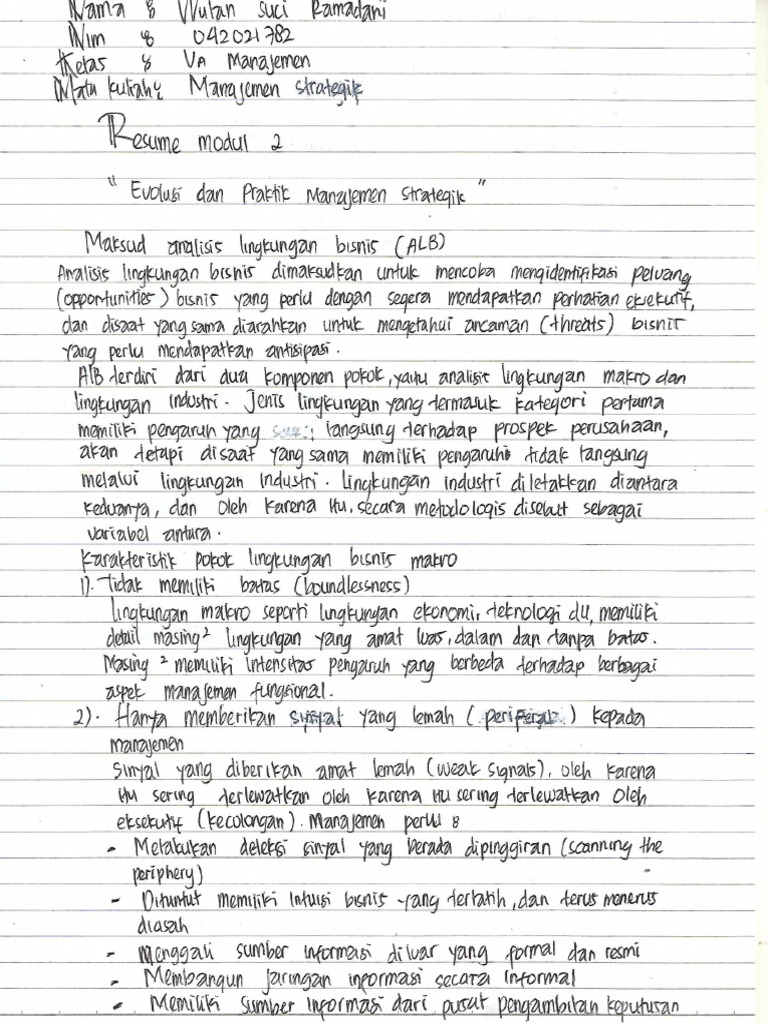 Nama : Wulan Suci Ramadani
Nim : 042021782
Kelas : VA Manajemen
Mata kuliah : Manajemen strategik
Resume modul 2
" Evolusi dan Praktik Manajemen Strategik "
Maksud analisis lingkungan bisnis (ALB)
Analisis lingkungan bisnis dimaksudkan untuk mencoba mengidentifikasi peluang
(opportunities) bisnis yang perlu dengan segera mendapatkan perhatian eksekutif,
dan disaat yang sama diarahkan untuk mengetahui ancaman (threats) bisnis
yang perlu mendapatkan antisipasi.
ALB terdiri dari dua komponen pokok, yaitu analisis lingkungan makro dan
lingkungan industri. Jenis lingkungan yang termasuk kategori pertama
memiliki pengaruh yang langsung terhadap prospek perusahaan,
akan tetapi disaat yang sama memiliki pengaruh tidak langsung
melalui lingkungan industri. Lingkungan industri diletakkan diantara
keduanya, dan oleh karena itu, secara metodologis disebut sebagai
variabel antara.
Karakteristik pokok lingkungan bisnis makro
1). Tidak memiliki batas (boundlessness)
lingkungan makro seporti lungkungan ekonomi, teknologi dll, memiliki
detail masing² lingkungan yang amat luas, dalam dan tanpa batas.
Masing² memiliki intensitas pengaruh yang berbeda terhadap berbagai
aspek manajemen fungsional.
2). Hanya memberikan sinyal yang lemah ( periferal ) kepada
manajemen
Sinyal yang diberikan amat lemah (weak signals), oleh karena
itu sering terlewatkan oleh karena itu sering terlewatkan oleh
eksekutif (kecolongan). Manajemen perlu :
- Melakukan deteksi sinyal yang berada dipinggiran (scanning the
periphery)
- Dituntut memiliki intuisi bisnis yang terlatih, dan terus menerus
diasah
- Menggali sumber informasi diluar yang formal dan resmi
- Membangun jaringan informasi secara informal
- Memiliki sumber informasi dari pusat pengambilan keputusan